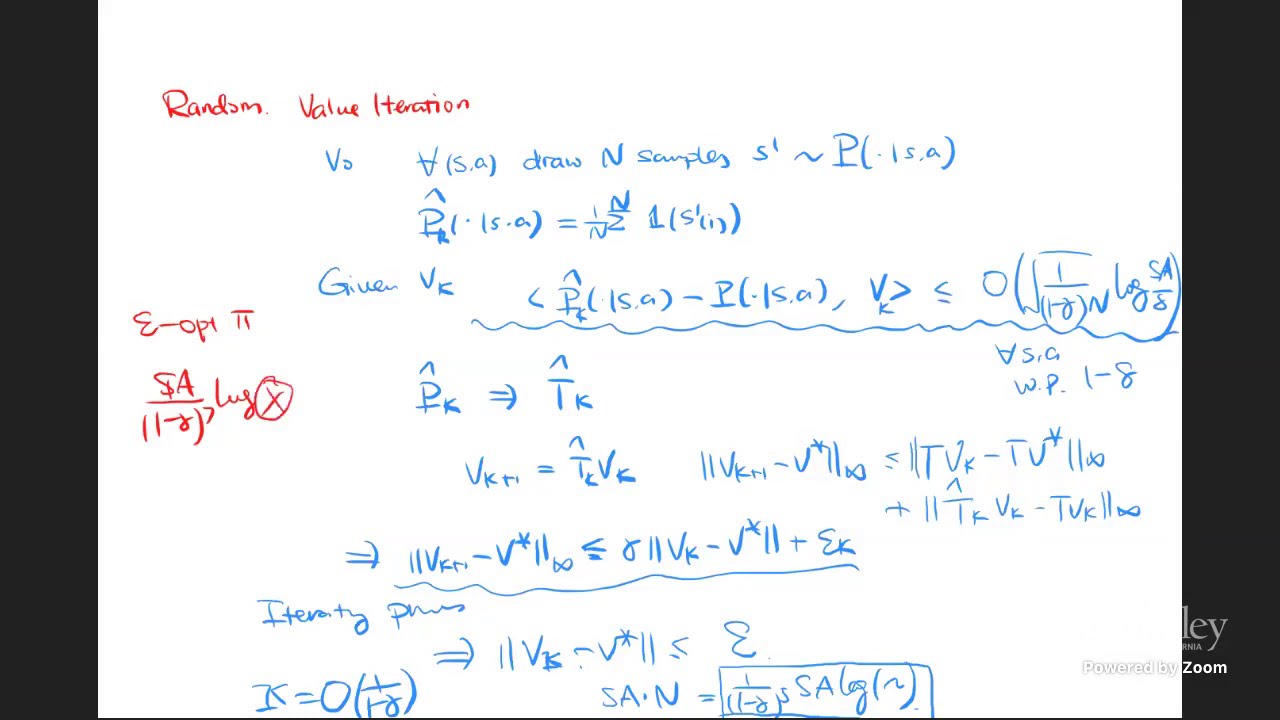 Random. Value Iteration
V₀ ∀(s,a) draw N samples s' ~ P(·|s,a)
P̂ₖ(·|s,a) = 1/N Σ^N 1(s'(i))
Given Vₖ ⟨P̂ₖ(·|s,a) − P(·|s,a), Vₖ⟩ ≤ O(√(1/((1-γ)N) log SA/δ)
∀s,a
w.p. 1-δ
ε-opt π
SA/(1-γ)³ log(X)
P̂ₖ ⇒ T̂ₖ
Vₖ₊₁ = T̂ₖVₖ ||Vₖ₊₁ − V*||∞ ≤ ||TVₖ − TV*||∞
+ ||T̂ₖVₖ − TVₖ||∞
⇒ ||Vₖ₊₁ − V*||∞ ≤ γ||Vₖ − V*|| + εₖ
⇒ ||Vₖ − V*|| ≤ ε
K = O(1/(1-γ)) SA·N = 1/(1-γ)⁵ SA log(~)
ley
RNIA
Powered by Zoom